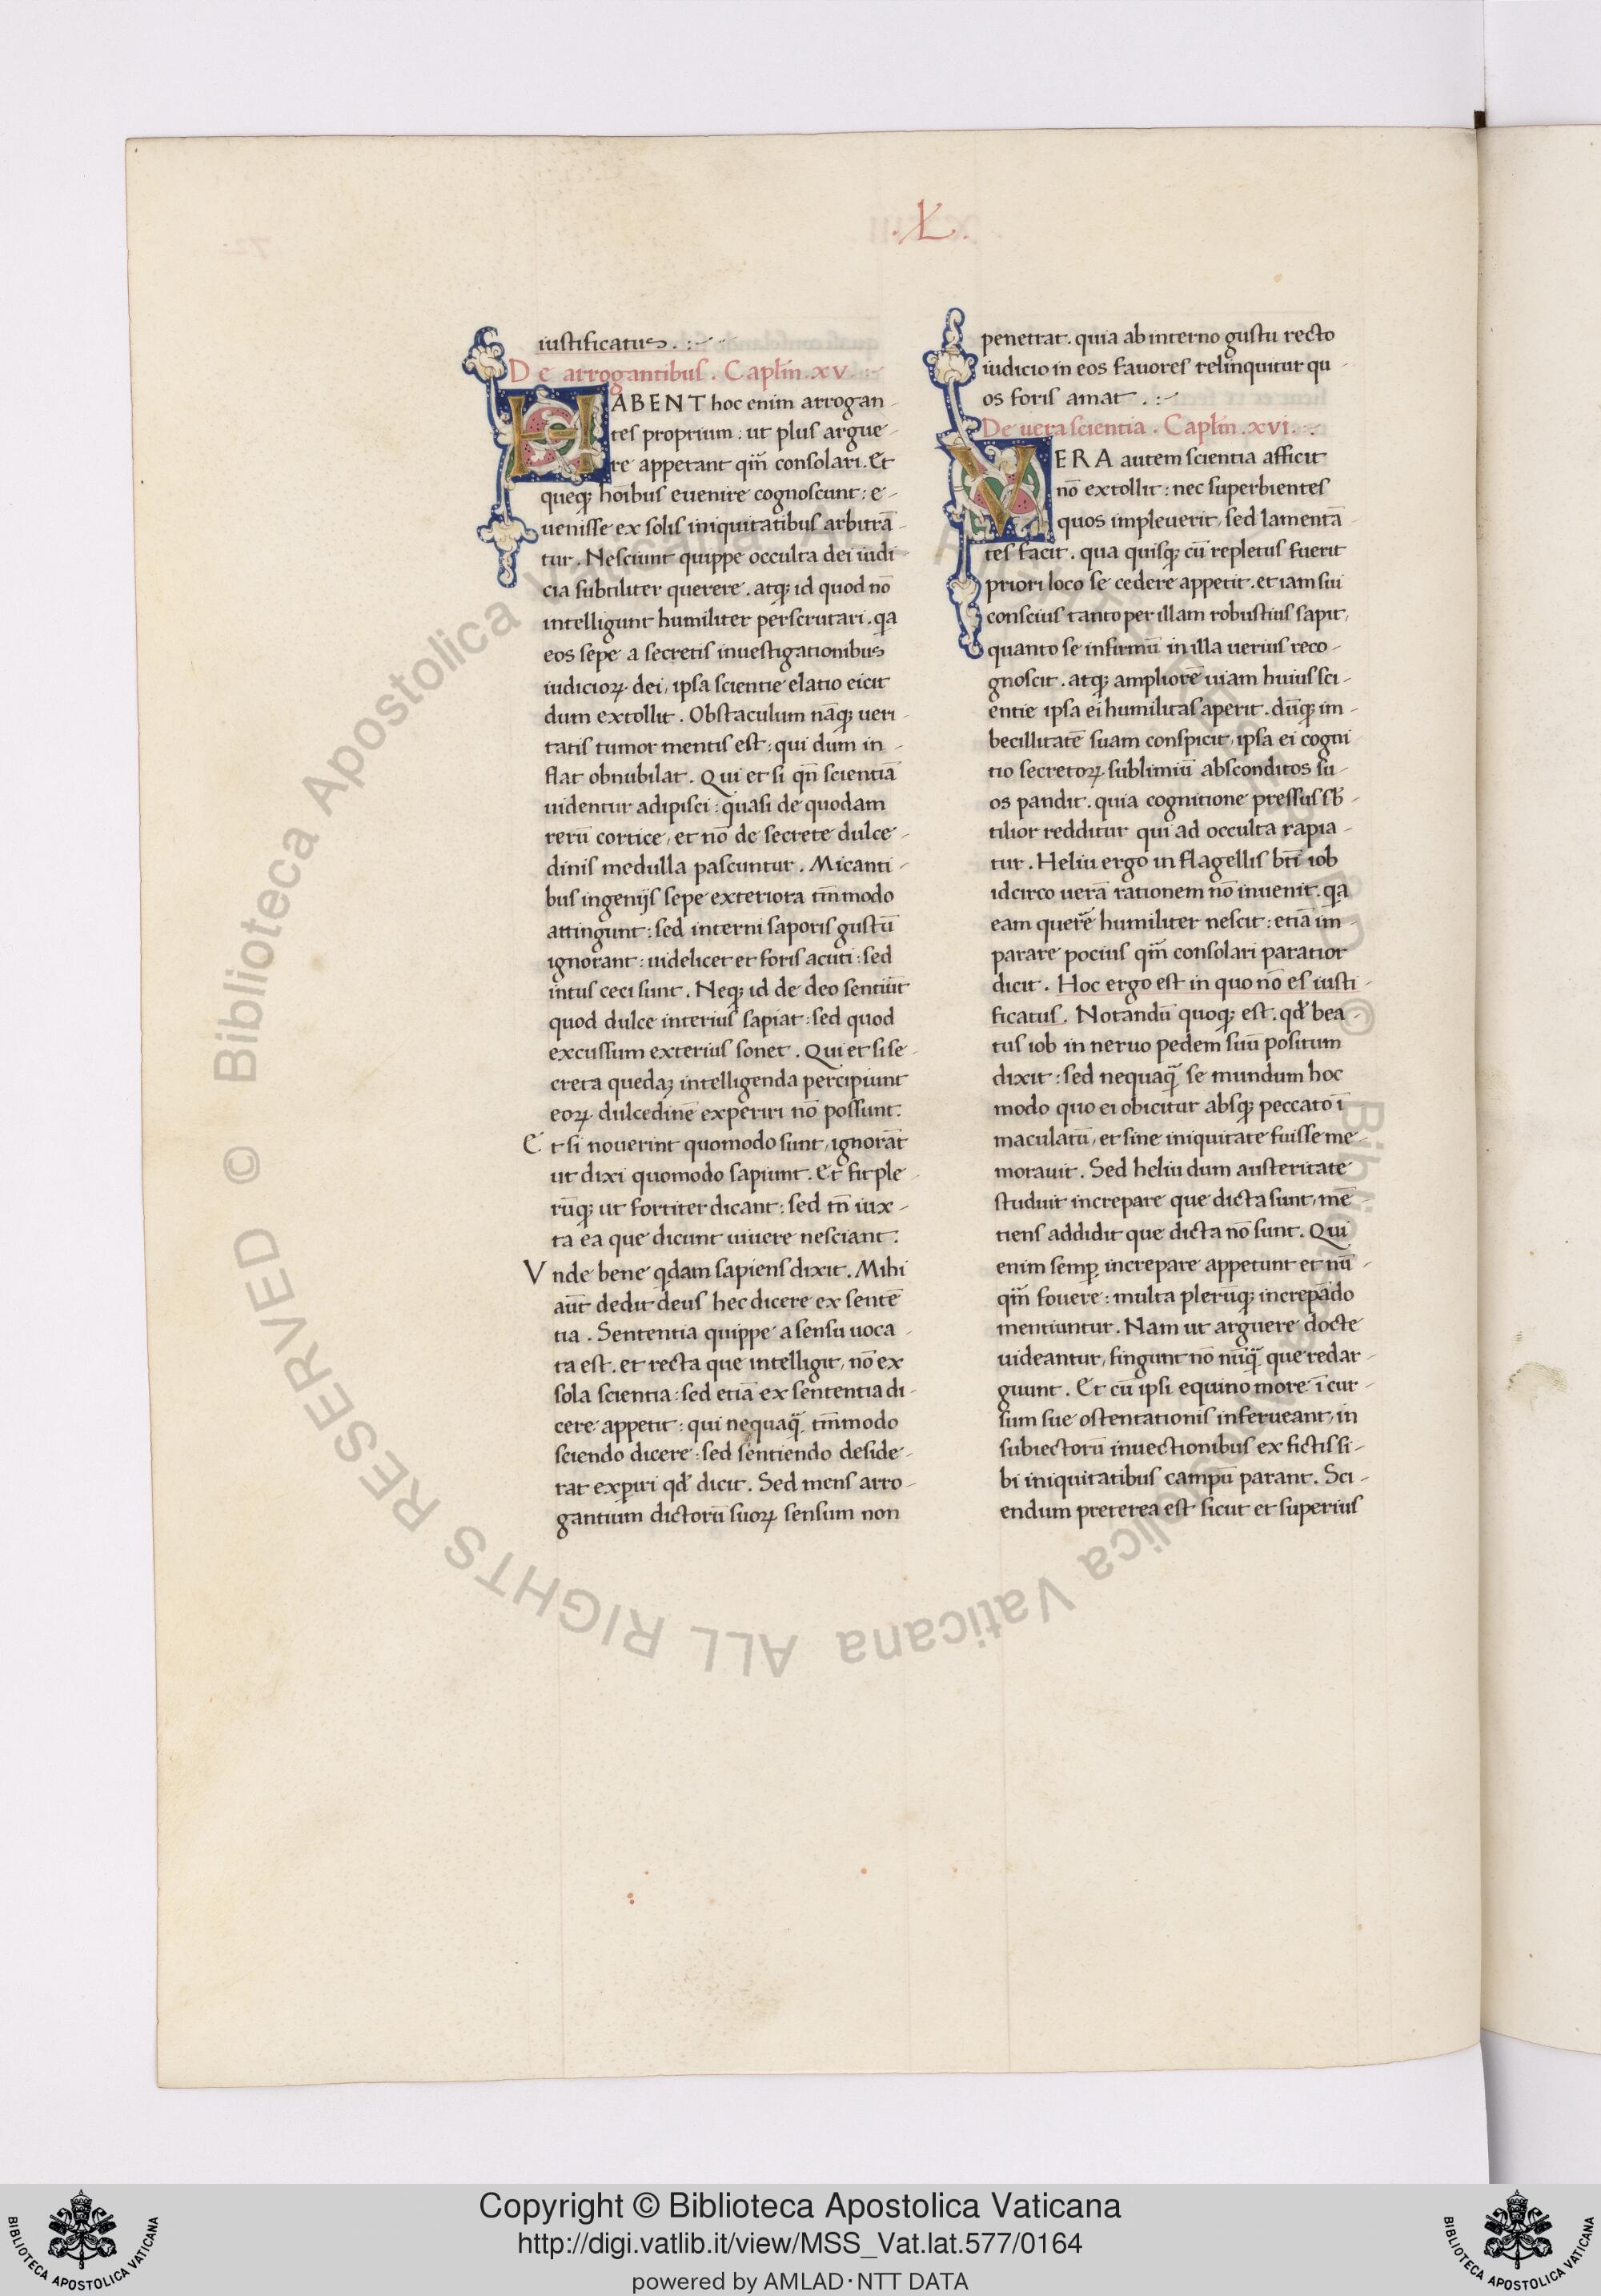 .XL.
iustificatus . :~
De arrogantibus . Caplm̄ .xv. :~
HABENT hoc enim arrogan-
tes proprium : ut plus argue-
re appetant qm̄ consolari . Et
queq; hoībus euenire cognoscunt : e-
uenisse ex solis iniquitatibus arbitrā-
tur . Nesciunt quippe occulta dei iudi
cia subtiliter querere . atq; id quod nō
intelligunt humiliter perscrutari . qa
eos sepe a secretis inuestigationibus
iudicioꝝ dei, ipsa scientie elatio eicit
dum extollit . Obstaculum nāq; ueri-
tatis tumor mentis est : qui dum in-
flat obnubilat . Qui et si qn̄ scientiā
uidentur adipisci : quasi de quodam
rerū cortice, et nō de secrete dulce-
dinis medulla pascuntur . Micanti-
bus ingenijs sepe exteriora tm̄modo
attingunt : sed interni saporis gustū
ignorant : uidelicet et foris acuti : sed
intus ceci sunt . Neq; id de deo sentiūt
quod dulce interius sapiat : sed quod
excussum exterius sonet . Qui et si se-
creta quedaꝫ intelligenda percipiunt
eoꝝ dulcedinē experiri nō possunt.
Et si nouerint quomodo sunt, ignorāt
ut dixi quomodo sapiunt . Et fit ple-
rūq; ut fortiter dicant : sed tn̄ iux-
ta ea que dicunt uiuere nesciant.
Vnde bene qdam sapiens dixit . Mihi
aūt dedit deus hec dicere ex sentē
tia . Sententia quippe a sensu uoca-
ta est . et recta que intelligit, nō ex
sola scientia : sed etiā ex sententia di-
cere appetit : qui nequaq̄ tm̄modo
sciendo dicere : sed sentiendo deside-
rat exꝑiri qd̄ dicit . Sed mens arro-
gantium dictorū suoꝝ sensum non
penetrat . quia ab interno gustu recto
iudicio in eos fauores relinquitur qu
os foris amat . :~
De uera scientia . Caplm̄ .xvi. :~
VERA autem scientia afficit
nō extollit : nec superbientes
quos impleuerit, sed lamentā
tes facit . qua quisq; cū repletus fuerit
priori loco se cedere appetit . et iam sui
conscius tanto per illam robustius sapit,
quanto se infirmū in illa uerius reco-
gnoscit . atq; ampliorē uiam huius sci-
entie ipsa ei humilitas aperit . dūq; im-
becillitatē suam conspicit, ipsa ei cogni
tio secretoꝝ sublimiū absconditos su-
os pandit . quia cognitione pressus sb̄-
tilior redditur qui ad occulta rapia-
tur . Heliu ergo in flagellis bt̄i iob
idcirco uerā rationem nō inuenit . qa
eam querē humiliter nescit : etiā im-
parare pocius qm̄ consolari paratior
dicit . Hoc ergo est in quo nō es iusti-
ficatus . Notandū quoq; est . qd̄ bea-
tus iob in neruo pedem suū positum
dixit : sed nequaq̄ se mundum hoc
modo quo ei obicitur absq; peccato ī
maculatū, et sine iniquitate fuisse me-
morauit . Sed heliu dum austeritate
studuit increpare que dicta sunt, mē-
tiens addidit que dicta nō sunt . Qui
enim semꝑ increpare appetunt et nū-
qm̄ fouere : multa plerūq; increpādo
mentiuntur . Nam ut arguere docte
uideantur, fingunt nō nūq̄ que redar-
guunt . Et cū ipsi equino more ī cur-
sum sue ostentationis inferueant, in
subiectorū inuectionibus ex fictis si-
bi iniquitatibus campū parant . Sci-
endum preterea est sicut et superius
© Biblioteca Apostolica Vaticana ALL RIGHTS RESERVED
Copyright © Biblioteca Apostolica Vaticana
http://digi.vatlib.it/view/MSS_Vat.lat.577/0164
powered by AMLAD·NTT DATA
BIBLIOTECA APOSTOLICA VATICANA
BIBLIOTECA APOSTOLICA VATICANA